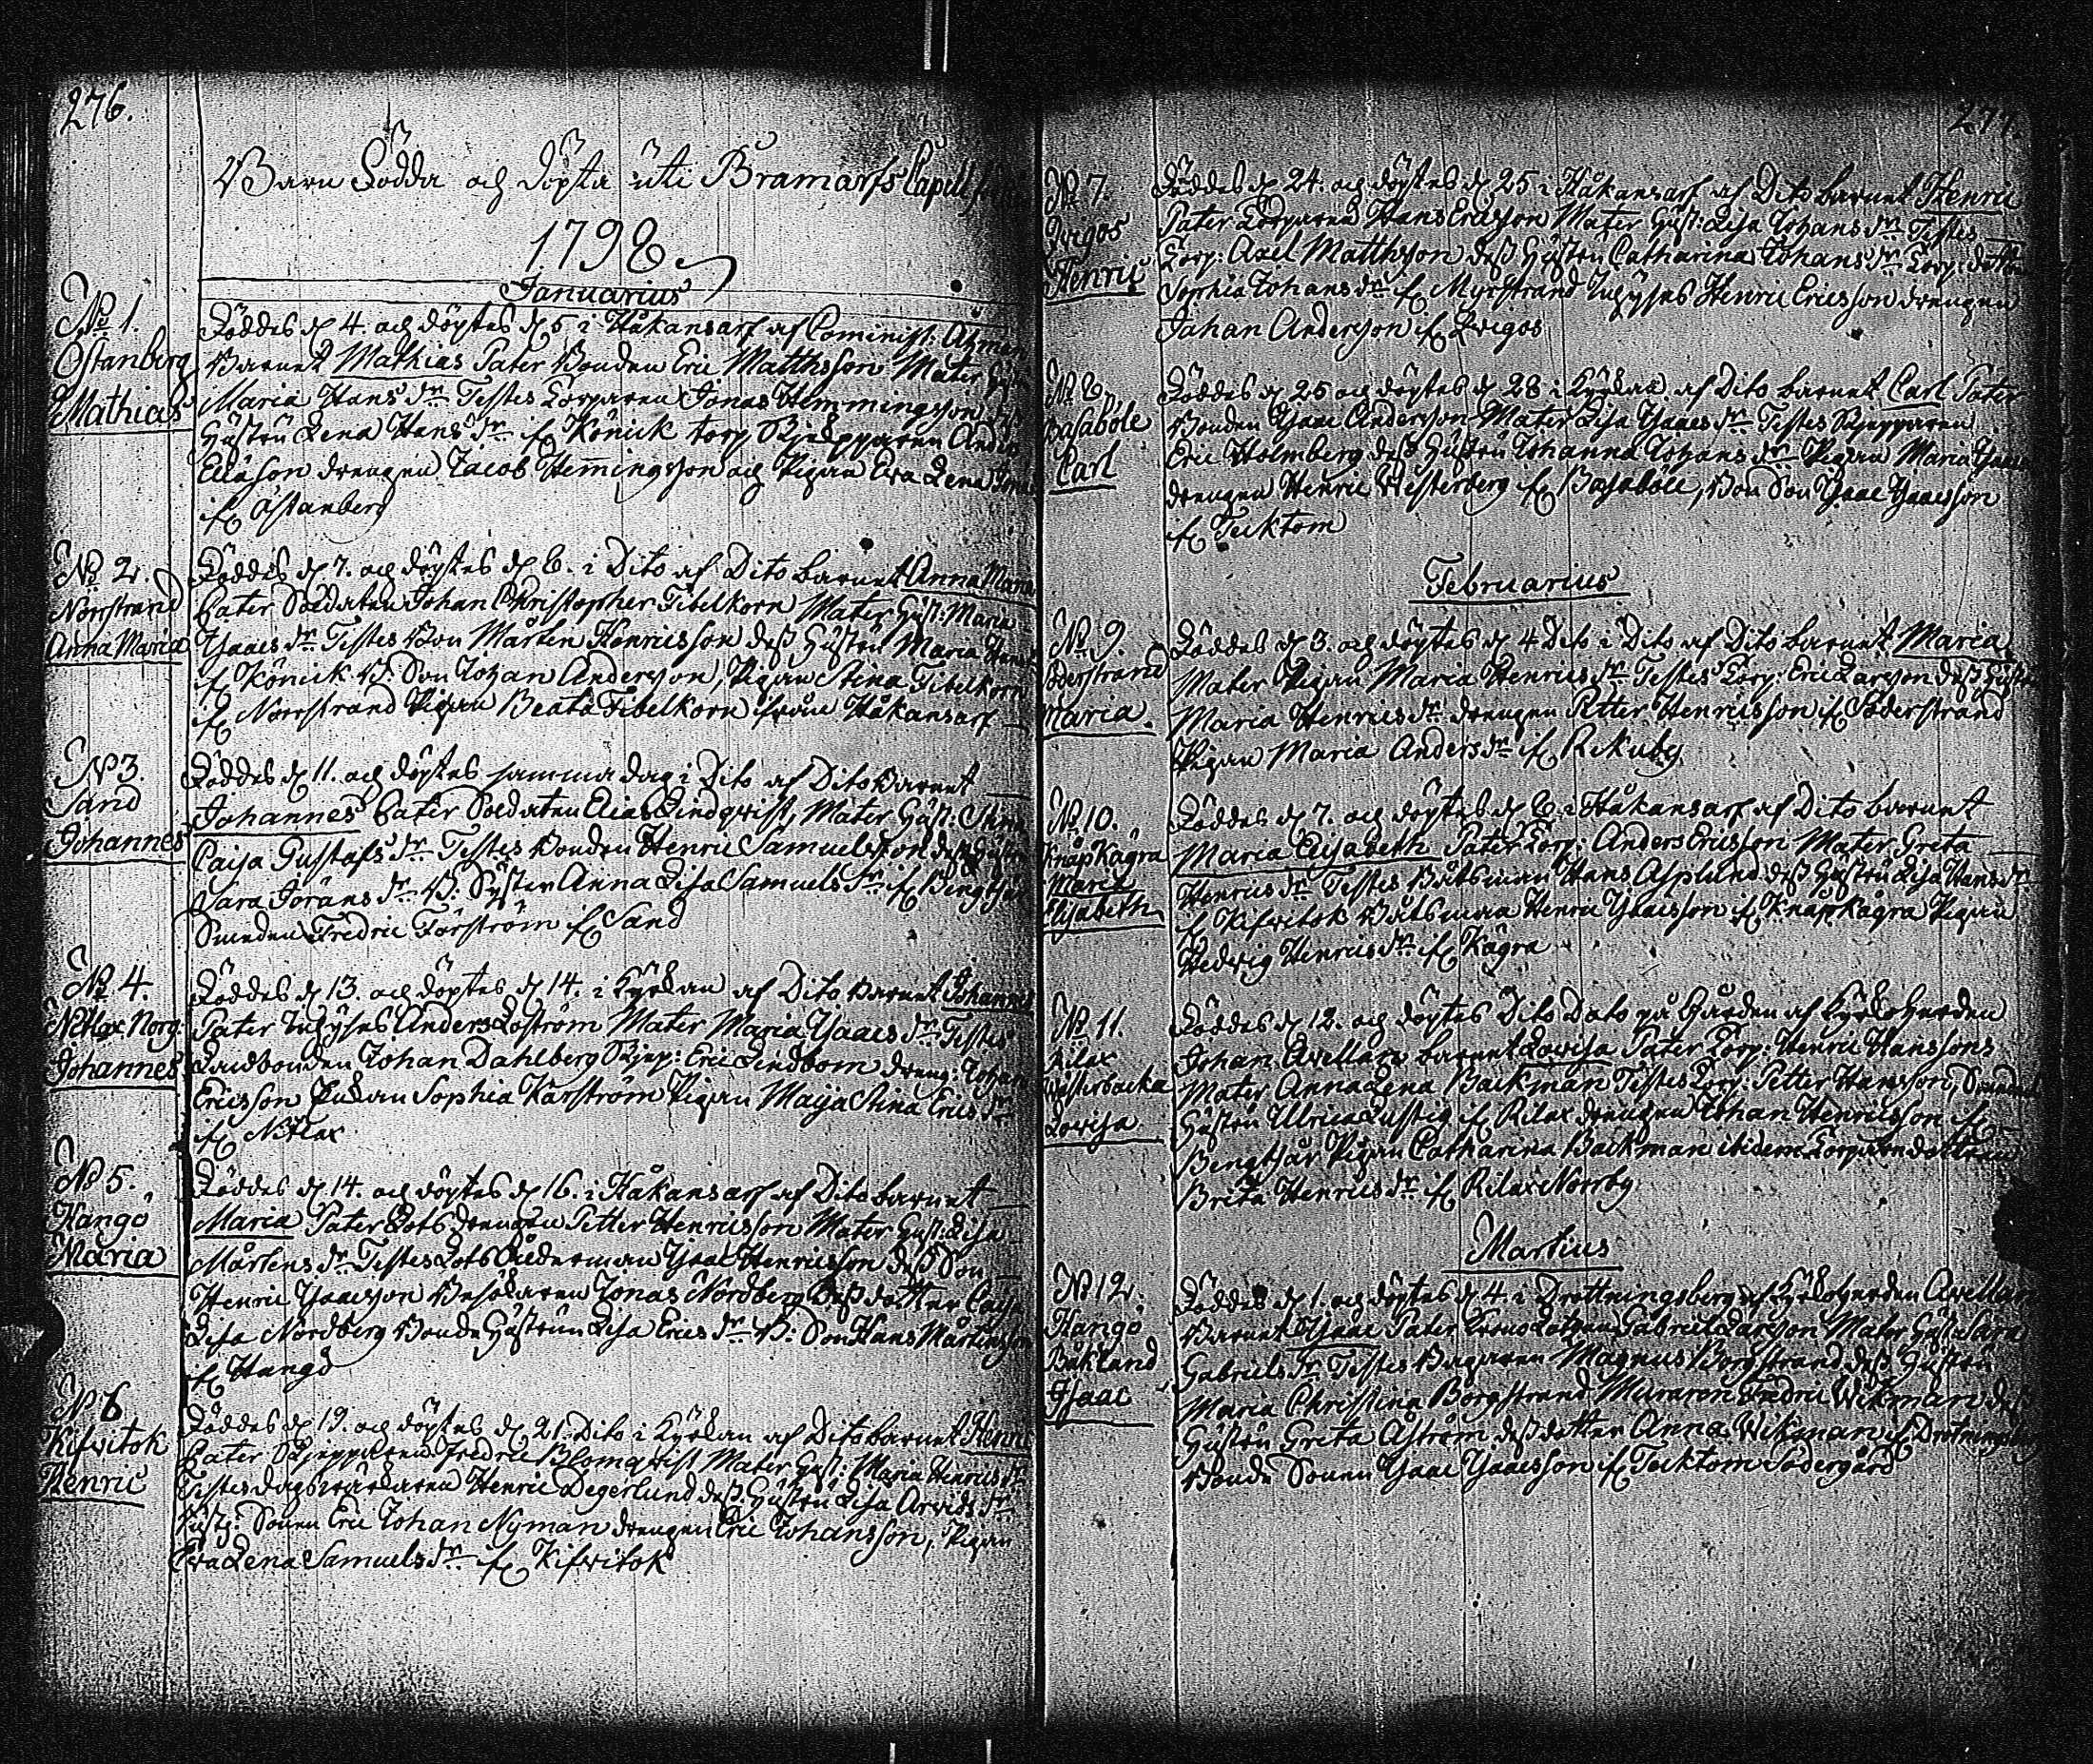 276.
Barn Födda och döpta uti Bramarfs Capell
1798
Januarius
No 1.
Östanberg
Mathias
Föddes d. 4. och döptes d. 5 i Håkansarf af Cominist: Åhman
Barnet Mathias Pater Bonden Eric Matthsson Mater
Maria Hans dr Testes Torparen Jonas Hemmingsson
Hustru Lena Hans dr fr Könick torp Skiepparen Anders
Eliason drengen Jacob Hemingsson och Pigan Eva Lena
fr Östanberg
No 2.
Norrstrand
Anna Maria
Föddes d. 7. och döptes d. 8. i Dito af Dito barnet Anna Maria
Pater Soldaten Johan Christopher Fibelkorn Mater Hust: Maria
Isaacs dr Testes Bon Mårten Henricsson dess Hustru Maria
fr Könick B: Son Johan Andersson, Pigan Stina Fibelkorn
fr Norrstrand Pigan Beata Fibelkorn ifrån Håkansarf
No 3.
Sand
Johannes
Föddes d. 11. och döptes samma dag i Dito af Dito Barnet
Johannes Pater Soldaten Elias Lindqvist, Mater Hust:
Caisa Gustafs dr Testes Bonden Henric Samuelsson dess Hustru
Sara Jörans dr B: Syster Anna Lisa Samuels dr fr Bengtsår
Smeden Fredric Törström fr Sand
No 4.
Nitlax Norg:
Johannes
Föddes d. 13. och döptes d. 14. i Kyrkan af Dito Barnet Johannes
Pater Inhyses Anders Löström Mater Maria Isaacs dr Testes
Landbonden Johan Dahlberg Skiep: Eric Lindbom dreng: Johan
Ericsson Enkan Sophia Karström Pigan Maija Stina Erics dr
fr Nitlax
No 5.
Hangö
Maria
Föddes d. 14. och döptes d. 16. i Håkansarf af Dito barnet
Maria Pater Lots drengen Petter Henricsson Mater Hust: Lisa
Mårtens dr Testes Lots Åldermannen Isaac Henricsson dess Son
Henric Isaacsson Besökaren Jonas Nordberg dess dotter Caisa
Lisa Nordberg Bonde Hustrun Lisa Erics dr B: Son Hans Mårtensson
fr Hangö
No 6
Kifvitok
Henric
Föddes d. 19. och döptes d. 21. Dito i Kyrkan af Dito barnet Henric
Pater Skiepparen Fredric Blomqvist Mater Hust: Maria Henrics dr
Testes dagsverkaren Henric Degerlund dess Hustru Lisa Arvids dr
Sonen Eric Johan Nyman drengen Eric Johansson, Pigan
Eva Lena Samuels dr fr Kifvitok
277.
No 7.
Qvigos
Henric
Föddes d. 24. och döptes d. 25 i Håkansarf af Dito barnet Henric
Pater Torparen Hans Ericsson Mater Hust: Lisa Johans dr Testes
Torp: Axel Matthsson dess Hustru Catharina Johans dr Torp: dotter
Sophia Johans dr fr Myrstrand Inhyses Henric Ericsson drengen
Johan Andersson fr Qvigos
No 8.
Basaböle
Carl
Föddes d. 25 och döptes d. 28 i Kyrkan af Dito barnet Carl Pater
Bonden Isaac Andersson Mater Lisa Isaacs dr Testes Skiepparen
Eric Holmberg dess Hustru Johanna Johans dr Pigan Maria
drengen Henric Westerberg fr Basaböle, Bon Son Isaac Isaacsson
fr Tecktom
Februarius
No 9.
Söderstrand
Maria.
Föddes d. 3. och döptes d. 4 Dito i Dito af Dito barnet Maria
Mater Pigan Maria Henrics dr Testes Torp: Eric Larsson dess Hustru
Maria Henrics dr drengen Petter Henricsson fr Söderstrand
Pigan Maria Anders dr fr Rekuby
No 10.
Knåpkågra
Maria
Elisabeth
Föddes d. 7. och döptes d. 8 i Håkansarf af Dito barnet
Maria Elisabeth Pater Torp: Anders Ericsson Mater Greta
Henrics dr Testes Båtsman Hans Asplund dess Hustru Lisa Hans dr
fr Kifvitok Båtsman Henric Isaacsson fr Knåpkågra Pigan
Hedvig Henrics dr fr Kågra
No 11.
Rilax
Westerbacka
Lovisa
Föddes d. 12. och döptes Dito Dato på Gården af Kyrkoherden
Johan Avellan barnet Lovisa Pater Torp: Henric Hanssons
Mater Anna Lena Backman Testes Torp: Petter Hansson,
Hustru Ulrica Lustig fr Rilax drengen Johan Henricsson fr
Bengtsår Pigan Catharina Backman ibidem Torparedottren
Brita Henrics dr fr Rilax Norrby
Martius
No 12.
Hangö
Båkland
Isaac
Föddes d. 1. och döptes d. 4. i Drottningsberg af Kyrkoherden Avellan
Barnet Isaac Pater Krono Lotsen Gabriel Larsson Mater Hust: Sara
Gabriels dr Testes Bagaren Magnus Borgstrand dess Hustru
Maria Christina Borgstrand Muraren Fredric Wikman dess
Hustru Greta Åström dess dotter Anna Wikman fr Drotningsberg
Bonde Sonen Isaac Isaacsson fr Tecktom Södergård